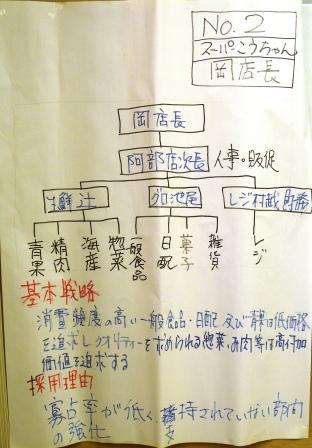 No.2
スーパーこうちゃん
岡店長
岡店長
阿部店次長 人事・販促
生鮮辻 グロ池尾 レジ村越 財務
青果 精肉 海産 惣菜 一般食品 日配 菓子 雑貨 レジ
基本戦略
消費頻度の高い一般食品・日配及び青果は低価格
を追求しクオリティーを求められる惣菜・お肉等は高付加
価値を追求する
採用理由
寡占率が低く、支持されていない部門
の強化